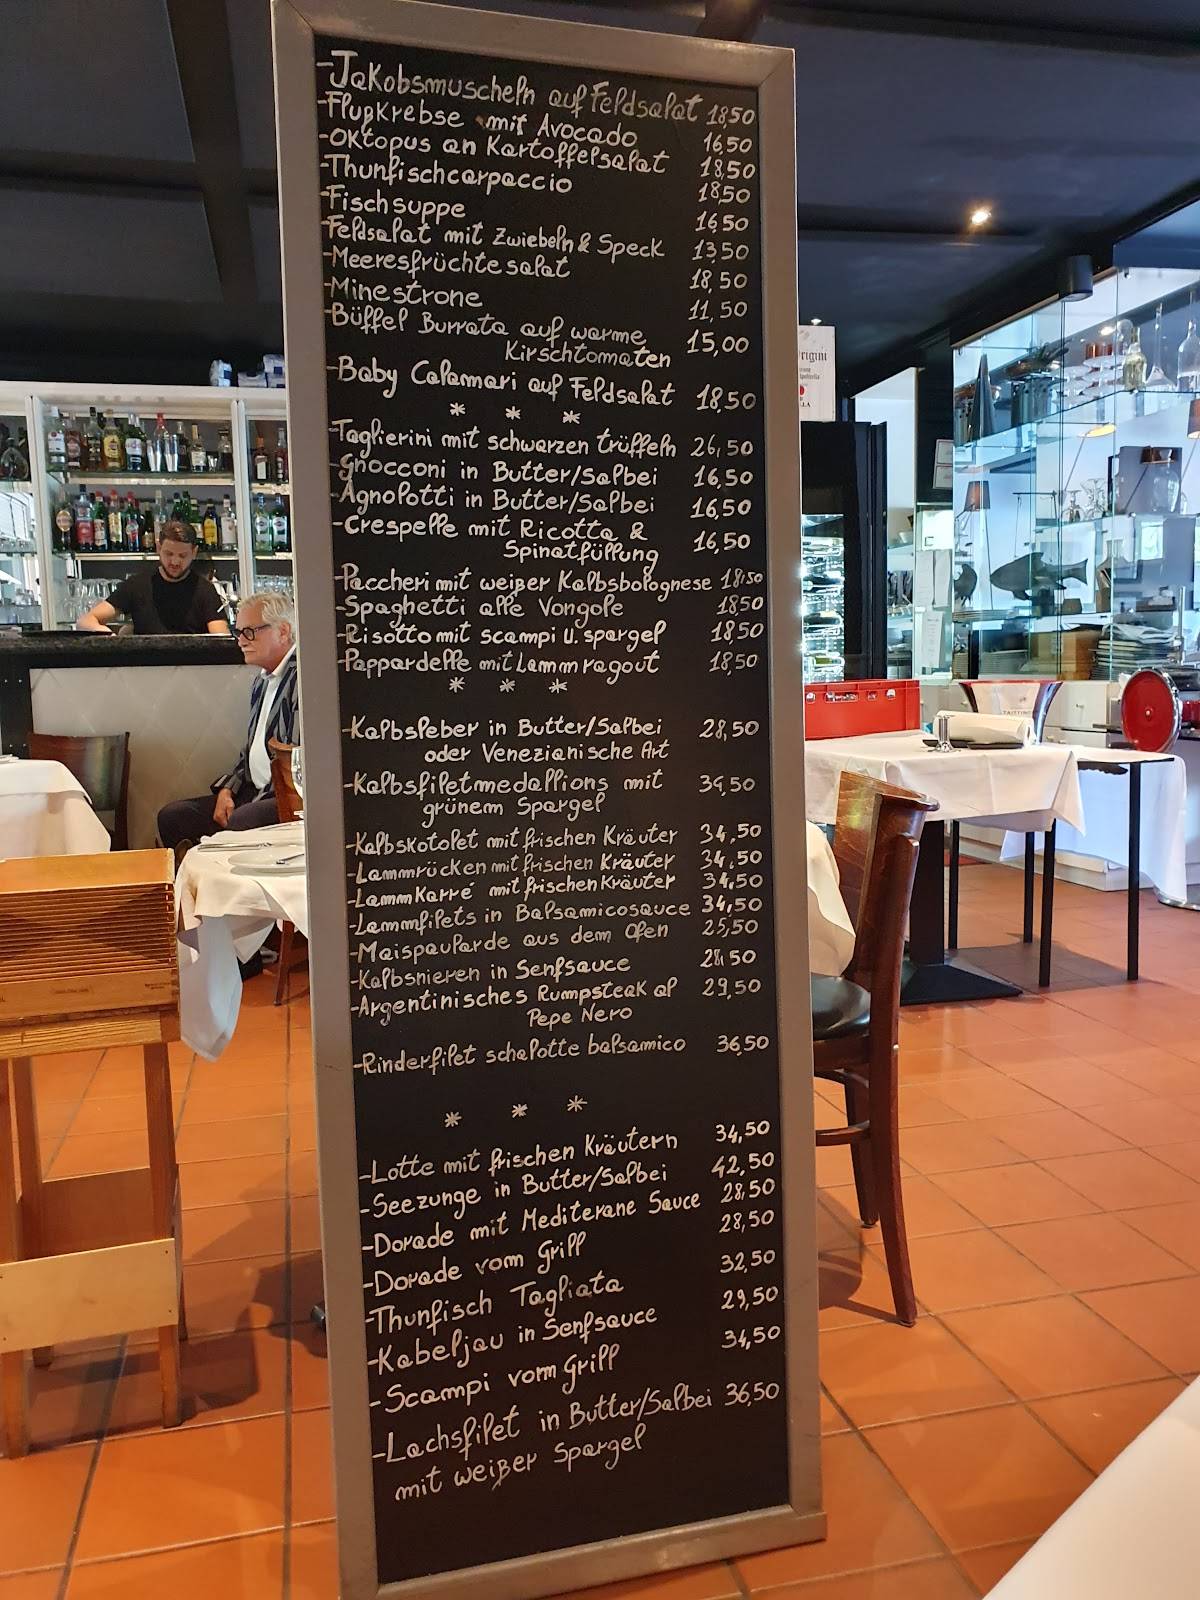 -Jakobsmuscheln auf Feldsalat 18,50
-Flußkrebse mit Avocado 16,50
-Oktopus an Kartoffelsalat 18,50
-Thunfischcarpaccio 18,50
-Fischsuppe 16,50
-Feldsalat mit Zwiebeln & Speck 13,50
-Meeresfrüchtesalat 18,50
-Minestrone 11,50
-Büffel Burrata auf warme 15,00
Kirschtomaten
-Baby Calamari auf Feldsalat 18,50
* * *
-Taglierini mit schwarzen trüffeln 26,50
-Gnocconi in Butter/Salbei 16,50
-Agnolotti in Butter/Salbei 16,50
-Crespelle mit Ricotta & 16,50
Spinatfüllung
-Paccheri mit weißer Kalbsbolognese 18,50
-Spaghetti alle Vongole 18,50
-Risotto mit scampi u. spargel 18,50
-Pappardelle mit Lammragout 18,50
* * *
-Kalbsleber in Butter/Salbei 28,50
oder Venezianische Art
-Kalbsfiletmedallions mit 34,50
grünem Spargel
-Kalbskotolet mit frischen Kräuter 34,50
-Lammrücken mit frischen Kräuter 34,50
-LammKarré mit frischen Kräuter 34,50
-Lammfilets in Balsamicosauce 34,50
-Maispoularde aus dem Ofen 25,50
-Kalbsnieren in Senfsauce 28,50
-Argentinisches Rumpsteak al 29,50
Pepe Nero
-Rinderfilet schalotte balsamico 36,50
* * *
-Lotte mit frischen Kräutern 34,50
-Seezunge in Butter/Salbei 42,50
-Dorade mit Mediterane Sauce 28,50
-Dorade vom Grill 28,50
-Thunfisch Tagliata 32,50
-Kabeljau in Senfsauce 29,50
-Scampi vom Grill 34,50
-Lachsfilet in Butter/Salbei 36,50
mit weißer Spargel